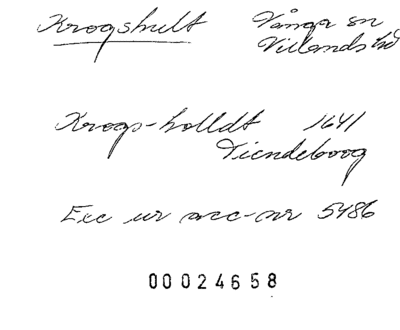 Krogshult Vånga sn
Villands hd
Krogs-holldt 1641
Tiendeboog
Exc ur acc-nr 5486
00024658